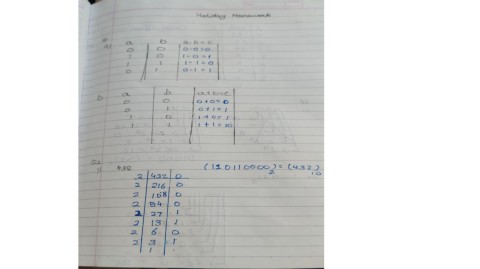 Holiday Homework
a b a-b=c
0 0 0-0=0
1 0 1-0=1
1 1 1-1=0
0 1 0-1=1
b a b a+b=c
0 0 0+0=0
0 1 0+1=1
1 0 1+0=1
1 1 1+1=10
432 (110110000)2=(432)10
2 432 0
2 216 0
2 108 0
2 54 0
2 27 1
2 13 1
2 6 0
2 3 1
1